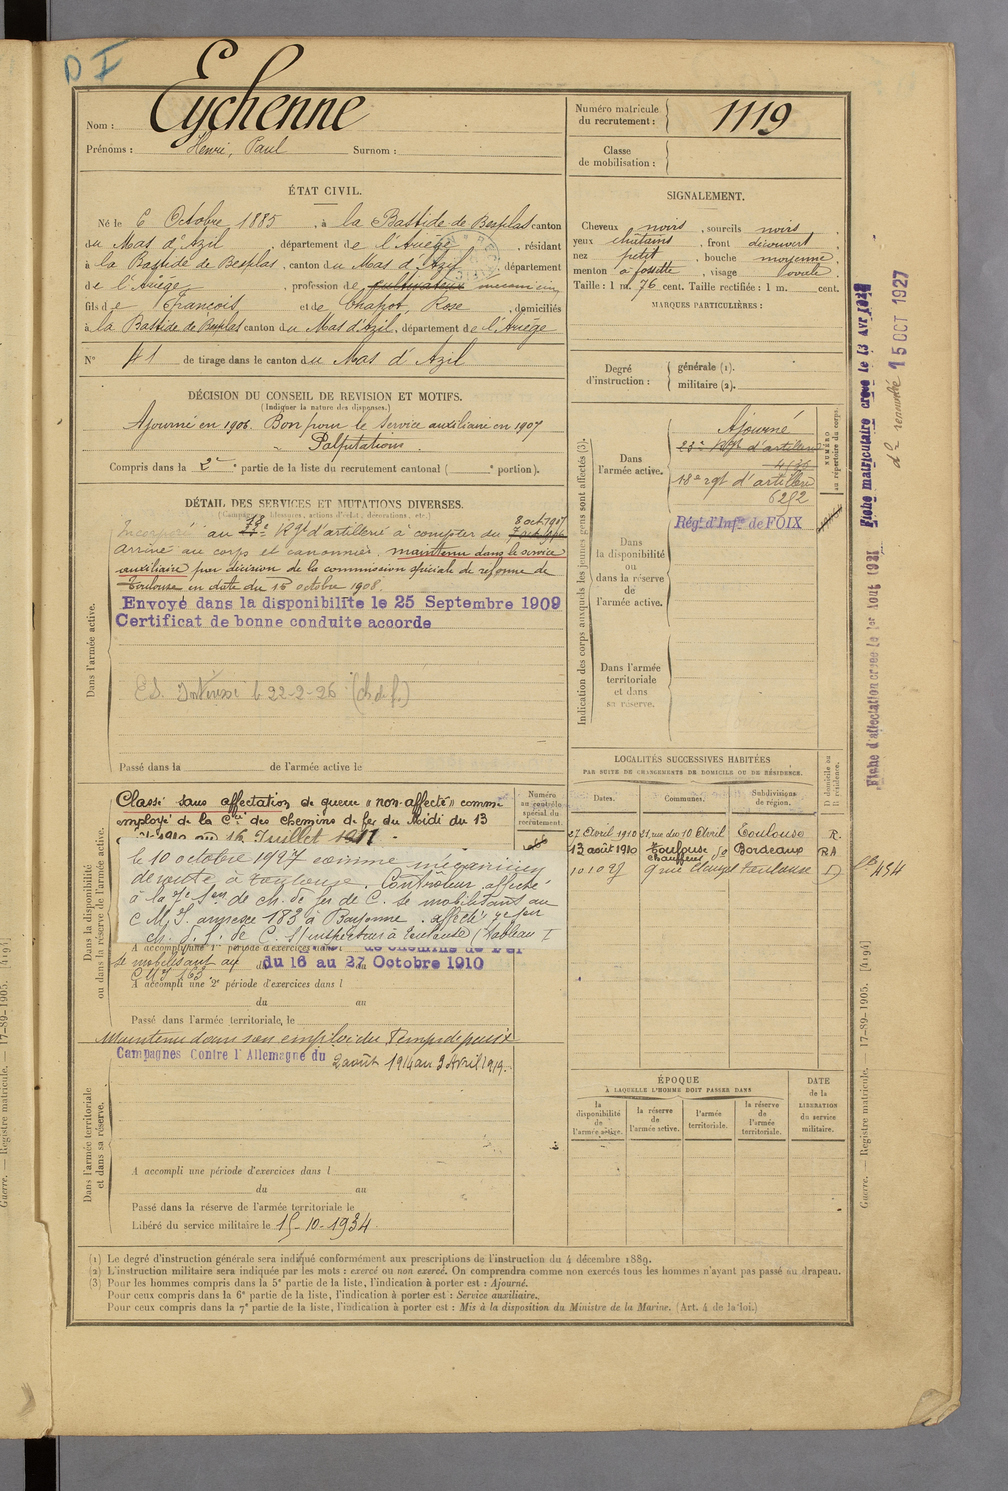 D I
Nom : Eychenne
Prénoms : Henri, Paul Surnom :
Numéro matricule du recrutement : 1119
Classe de mobilisation :
ÉTAT CIVIL.
Né le 6 Octobre 1885, à la Bastide de Besplas canton
du Mas d'Azil, département de l'Ariège, résidant
à la Bastide de Besplas, canton du Mas d'Azil, département
de l'Ariège, profession de cultivateur mécanicien
fils de François et de Chapot, Rose, domiciliés
à la Bastide de Besplas canton du Mas d'Azil, département de l'Ariège
N° 41 de tirage dans le canton du Mas d'Azil
SIGNALEMENT.
Cheveux noirs, sourcils noirs
yeux chatains, front découvert
nez petit, bouche moyenne
menton à fossette, visage ovale
Taille : 1 m. 76 cent. Taille rectifiée : 1 m. cent.
MARQUES PARTICULIÈRES :
Degré d'instruction : générale (1).
militaire (2).
DÉCISION DU CONSEIL DE REVISION ET MOTIFS.
(Indiquer la nature des dispenses.)
Ajourné en 1906. Bon pour le service auxiliaire en 1907
Palpitations.
Compris dans la 2e partie de la liste du recrutement cantonal ( e portion).
DÉTAIL DES SERVICES ET MUTATIONS DIVERSES.
(Campagnes, blessures, actions d'éclat, décorations, etc.)
Dans l'armée active.
Incorporé au 18e Rgt d'artillerie à compter du 8 oct 1907
arrivé au corps et canonnier, maintenu dans le service
auxiliaire par décision de la commission spéciale de réforme de
Toulouse en date du 15 octobre 1908.
Envoyé dans la disponibilité le 25 Septembre 1909
Certificat de bonne conduite accorde
Passé dans la de l'armée active le
Indication des corps auxquels les jeunes gens sont affectés (3).
NUMÉRO au répertoire du corps.
Dans l'armée active.
Ajourné
23e Rgt d'artillerie
18e rgt d'artillerie
6292
Dans la disponibilité ou dans la réserve de l'armée active.
Régt d'Infie de FOIX
Dans l'armée territoriale et dans sa réserve.
Fiche d'affectation créée le 1er Aout 1921
Fiche matriculaire créée le
15 OCT 1927
Dans la disponibilité ou dans la réserve de l'armée active.
Numéro au contrôle spécial du recrutement.
Classé sans affectation de guerre "non-affecté" comme
employé de la Cie des Chemins de fer du Midi du 13
1910 au 16 Juillet 1911
le 10 octobre 1927 comme mécanicien
de route à Toulouse. Contrôleur affecté
à la 7e Son de ch. de fer de C. se mobilisant au
C.M.I. annexe 183 à Bayonne. affecté 7e Son
ch. d. f. de C. S/inspecteur à Toulouse (Tableau I
A accompli une 1re période d'exercices dans l de Chemins de Fer
se mobilisant au du 16 au 27 Octobre 1910
A accompli une 2e période d'exercices dans l
du au
Passé dans l'armée territoriale, le
Maintenu dans son emploi du Temps de paix
Dans l'armée territoriale et dans sa réserve.
Campagnes Contre l'Allemagne du 2 août 1914 au 3 Avril 1919.
A accompli une période d'exercices dans l
du au
Passé dans la réserve de l'armée territoriale le
Libéré du service militaire le 15-10-1934
LOCALITÉS SUCCESSIVES HABITÉES
PAR SUITE DE CHANGEMENTS DE DOMICILE OU DE RÉSIDENCE.
D domicile ou R résidence.
Dates. Communes. Subdivisions de région.
27 Avril 1910 21, rue du 10 Avril Toulouse R.
13 août 1910 Toulouse chauffeur Bordeaux RA
10 10 27 Toulouse D
ÉPOQUE
À LAQUELLE L'HOMME DOIT PASSER DANS
la disponibilité de l'armée active.
la réserve de l'armée active.
l'armée territoriale.
la réserve de l'armée territoriale.
DATE de la LIBÉRATION du service militaire.
(1) Le degré d'instruction générale sera indiqué conformément aux prescriptions de l'instruction du 4 décembre 1889.
(2) L'instruction militaire sera indiquée par les mots : exercé ou non exercé. On comprendra comme non exercés tous les hommes n'ayant pas passé au drapeau.
(3) Pour les hommes compris dans la 5e partie de la liste, l'indication à porter est : Ajourné.
Pour ceux compris dans la 6e partie de la liste, l'indication à porter est : Service auxiliaire.
Pour ceux compris dans la 7e partie de la liste, l'indication à porter est : Mis à la disposition du Ministre de la Marine. (Art. 4 de la loi.)
Guerre. — Registre matricule. — 17-89-1905. [4194]